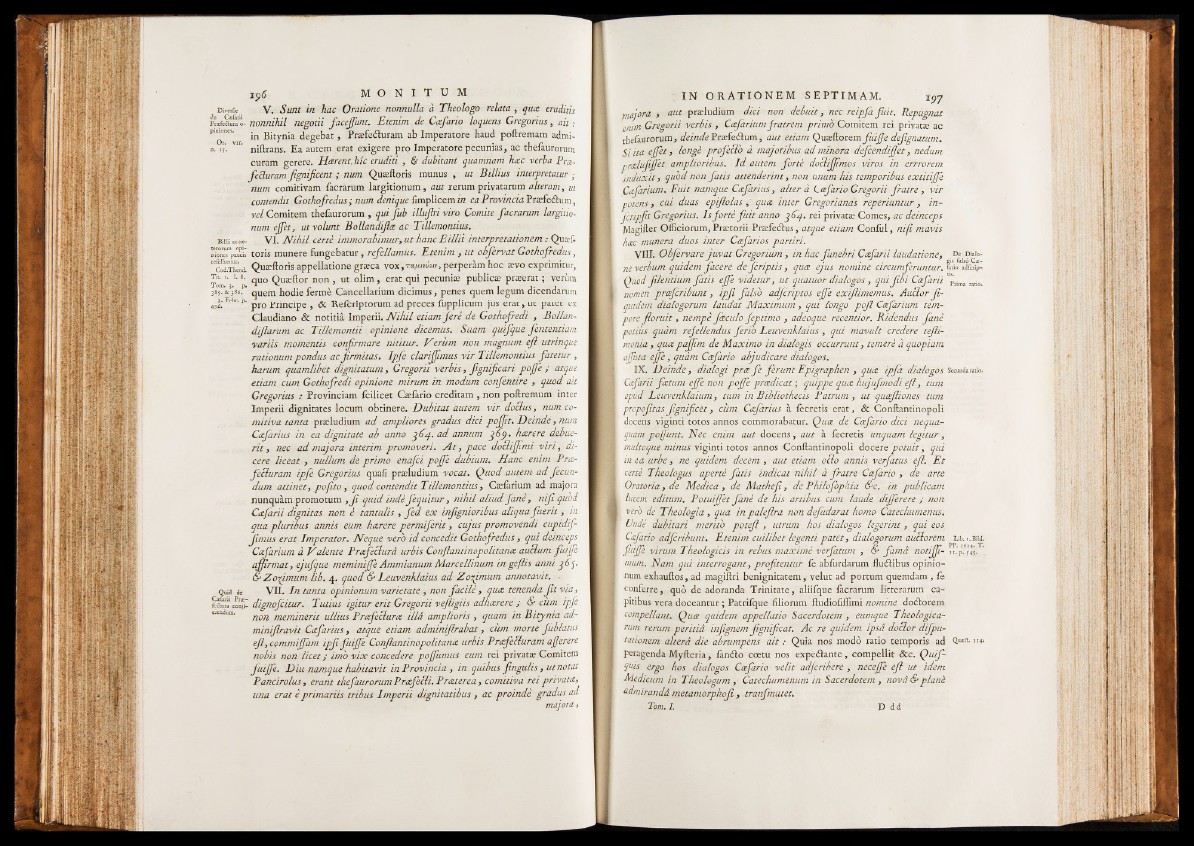 196 MONITUM
Diversæ de Cæsarii Præfectura opiniones.
Or. VII. n. 15.
V. Sunt in hac Oratione nonnulla à Theologo relata, quæ eruditis
nonnihil negotii facessunt. Etenim de Cæsario loquens Gregorius, ait :
in Bitynia degebat, Præfecturam ab Imperatore haud postremam admi-
nistrans. Ea autem erat exigere pro Imperatore pecunias, ac thesaurorum
curam gerere. Hærent hîc eruditi, & dubitant quamnam hæc verba Præ-
fecturam significent ; num Quæstoris munus, ut Billius interpretatur ;
num comitivam sacrarum largitionum, aut rerum privatarum alteram, ut
contendit Gothofredus ; num denique simplicem in ea Provincia Præfectum,
vel Comitem thesaurorum, qui sub illustri viro Comite sacrarum largitio-
num esset, ut volunt Bollandistæ ac Tillemontius.
VI. Nihil certè immorabimur, ut hanc Billii interpretationem : Quæs-
toris munere fungebatur, refellamus. Etenim, ut observat Gothofredus,
Cod. Theod. Tit. 1. l. 8. Tom. 3. p. 385. & 386.
Quæstoris appellatione græca vox, ταμιεύων, perperàm hoc ævo exprimitur,
quo Quæstor non, ut olim, erat qui pecuniæ publicæ præerat ; verùm
quem hodie fermè Cancellarium dicimus, penes quem legum dicendarum
pro Principe, & Rescriptorum ad preces supplicum jus erat, ut patet ex
Claudiano & notitiâ Imperii. Nihil etiam ferè de Gothofredi, Bollan-
distarum ac Tillemontii opinione dicemus. Suam quisque sententiam
variis momentis confirmare nititur. Verùm non magnum est utrinque
rationum pondus ac firmitas. Ipse clarissimus vir Tillemontius fatetur,
harum quamlibet dignitatum, Gregorii verbis, significari posse ; atque
etiam cum Gothofredi opinione mirum in modum consentire, quod ait
Gregorius : Provinciam scilicet Cæsario creditam, non postremum inter
Imperii dignitates locum obtinere. Dubitat autem vir doctus, num co-
mitiva tanta præludium ad ampliores gradus dici possit. Deinde, num
Cæsarius in ea dignitate ab anno 364. ad annum 369. hærere debue-
rit, nec ad majora interim promoveri. At, pace doctissimi viri, di-
cere liceat, nullum de primo enasci posse dubium. Hanc enim Præ-
fecturam ipse Gregorius quasi præludium vocat. Quod autem ad secun-
dum attinet, posito, quod contendit Tillemontius, Cæsarium ad majora
nunquàm promotum, si quid inde sequitur, nihil aliud sanè, nisi quòd
Cæsarii dignitas non è tantulis, sed ex insignioribus aliqua fuerit, in
qua pluribus annis eum hærere permiserit, cujus promovendi cupidis-
simus erat Imperator. Neque verò id concedit Gothofredus, qui deinceps
Cæsarium à Valente Præfecturâ urbis Constantinopolitanæ auctum fuisse
affirmat, ejusque meminisse Ammianum Marcellinum in gestis anni 365.
& Zozimum lib. 4. quod & Leuvenklaius ad Zozimum annotavit.
Quid de Cæsarii Præfectura conjiciendum.
VII. In tanta opinionum varietate, non facilè, quæ tenenda sit via,
dignoscitur. Tutius igitur erit Gregorii vestigiis adhærere ; & cùm ipse
non meminerit ullius Præfecturæ illâ amplioris, quam in Bitynia ad-
ministravit Cæsarius, atque etiam administrabat, cùm morte sublatus
est, commissam ipsi fuisse Constantinopolitanæ urbis Præfecturam asserere
nobis non licet ; imò vix concedere possumus eum rei privatæ Comitem
fuisse. Diu namque habitavit in Provincia, in quibus singulis, ut notat
Pancirolus, erant thesaurorum Præfecti. Præterea, comitiva rei privatæ,
una erat è primariis tribus Imperii dignitatibus, ac proinde gradus ad
majora,
IN ORATIONEM SEPTIMAM. 197
majora, aut præludium dici non debuit, nec reipsa fuit. Repugnat
enim Gregorii verbis, Cæsarium fratrem primò Comitem rei privatæ ac
thesaurorum, deinde Præfectum, aut etiam Quæstorem fuisse designatum.
Si ita esset, longè profectò à majoribus ad minora descendisset, nedum
prælusisset amplioribus. Id autem fortè doctissimos viros in errorem
induxit, quòd non satis attenderint, non unum his temporibus extitisse
Cæsarium. Fuit namque Cæsarius, alter à Cæsario Gregorii fratre, vir
potens, cui duas epistolas, quæ inter Gregorianas reperiuntur, in-
scripsit Gregorius. Is fortè fuit anno 364. rei privatæ Comes, ac deinceps
Magister Officiorum, Prætorii Præfectus, atque etiam Consul, nisi mavis
hæc munera duos inter Cæsarios partiri.
VIII. Observare juvat Gregorium, in hac funebri Cæsarii laudatione,
ne verbum quidem facere de scriptis, quæ ejus nomine circumferuntur.
Quod silentium satis esse videtur, ut quatuor dialogos, qui sibi Cæsarii
Prima ratio.
nomen præscribunt, ipsi falsò adscriptos esse existimemus. Auctor si-
quidem dialogorum laudat Maximum, qui longo post Cæsarium tem-
pore floruit, nempè sæculo septimo, adeoque recentior. Ridendus sanè
potiùs quàm refellendus seriò Leuvenklaius, qui mavult credere testi-
monia, quæ passim de Maximo in dialogis occurrunt, temerè à quopiam
assuta esse, quàm Cæsario abjudicare dialogos.
IX. Deinde, dialogi præ se ferunt Epigraphen, quæ ipsa dialogos
Secunda ratio.
Cæsarii fœtum esse non posse prædicat ; quippe quæ hujusmodi est, tum
apud Leuvenklaium, tum in Bibliothecis Patrum, ut quæstiones tum
propositas significet, cùm Cæsarius à secretis erat, & Constantinopoli
docens viginti totos annos commorabatur. Quæ de Cæsario dici nequa-
quam possunt. Nec enim aut docens, aut à secretis unquam legitur,
multoque minus viginti totos annos Constantinopoli docere potuit, qui
in ea urbe, ne quidem decem, aut etiam octo annis versatus est. Et
certè Theologus apertè satis indicat nihil à fratre Cæsario, de arte
Oratoria, de Medica, de Mathesi, de Philosophia &c. in publicam
lucem editum. Potuisset sanè de his artibus cum laude disserere ; non
verò de Theologia, qua in palæstra non desudarat homo Catechumenus.
Undè dubitari meritò potest, utrum hos dialogos legerint, qui eos
Cæsario adscribunt. Etenim cuilibet legenti patet, dialogorum auctorem
fuisse virum Theologicis in rebus maximè versatum, & famâ notissi-
mum. Nam qui interrogant, profitentur se absurdarum fluctibus opinio-
num exhaustos, ad magistri benignitatem, velut ad portum quemdam, se
conferre, quò de adoranda Trinitate, aliisque sacrarum litterarum ca-
pitibus vera doceantur ; Patrisque filiorum studiosissimi nomine doctorem
compellant. Quæ quidem appellatio Sacerdotem, eumque Theologica-
rum rerum peritiâ insignem significat. Ac re quidem ipsâ doctor dispu-
tationem alterâ die abrumpens ait : Quia nos modò ratio temporis ad
Quæst. 114.
peragenda Mysteria, sancto cœtu nos expectante, compellit &c. Quis-
quis ergo hos dialogos Cæsario velit adscribere, necesse est ut idem
Medicum in Theologum, Catechumenum in Sacerdotem, novâ & planè
admirandâ metamorphosi, transmutet.
Tom. I. D dd